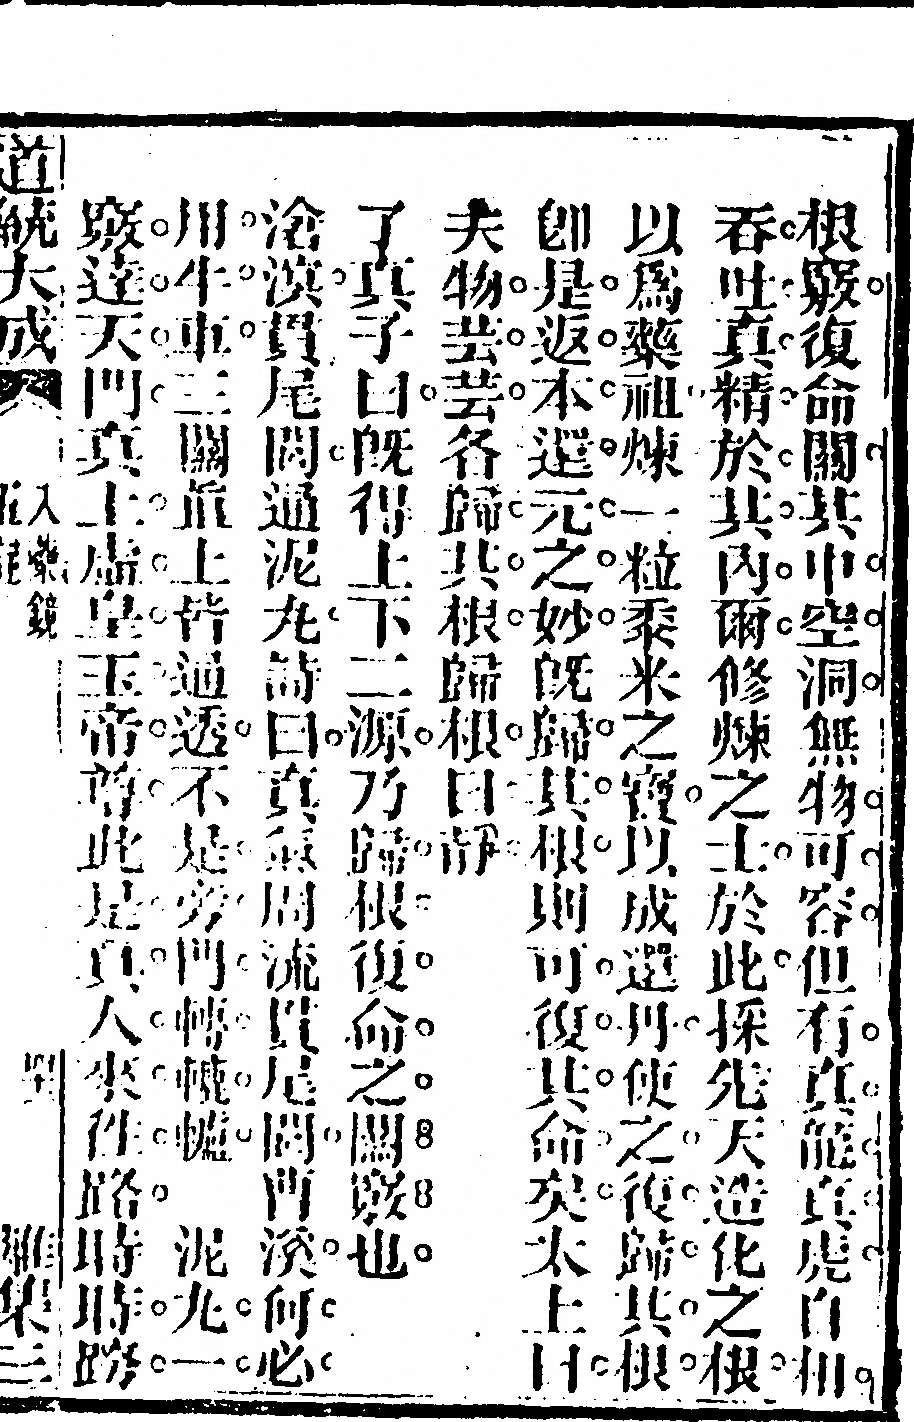 根竅復命關其中空洞無物可容但有真龍真虎自相
吞吐真精於其內爾修煉之士於此採先天造化之根
以爲藥祖煉一粒黍米之寶以成還丹使之復歸其根
卽是返本還元之妙旣歸其根則可復其命矣太上曰
夫物芸芸各歸其根歸根曰靜
了真子曰旣得上下二源乃歸根復命之關竅也
滄溟貫尾閭通泥丸詩曰真氣周流貫尾閭門深何必
用牛車三關直上皆通透不是旁門轉轆轤 泥丸一
竅達天門真上虛皇玉帝尊此是真人來往路時時跨
道統大成 入藥鏡 雖集三